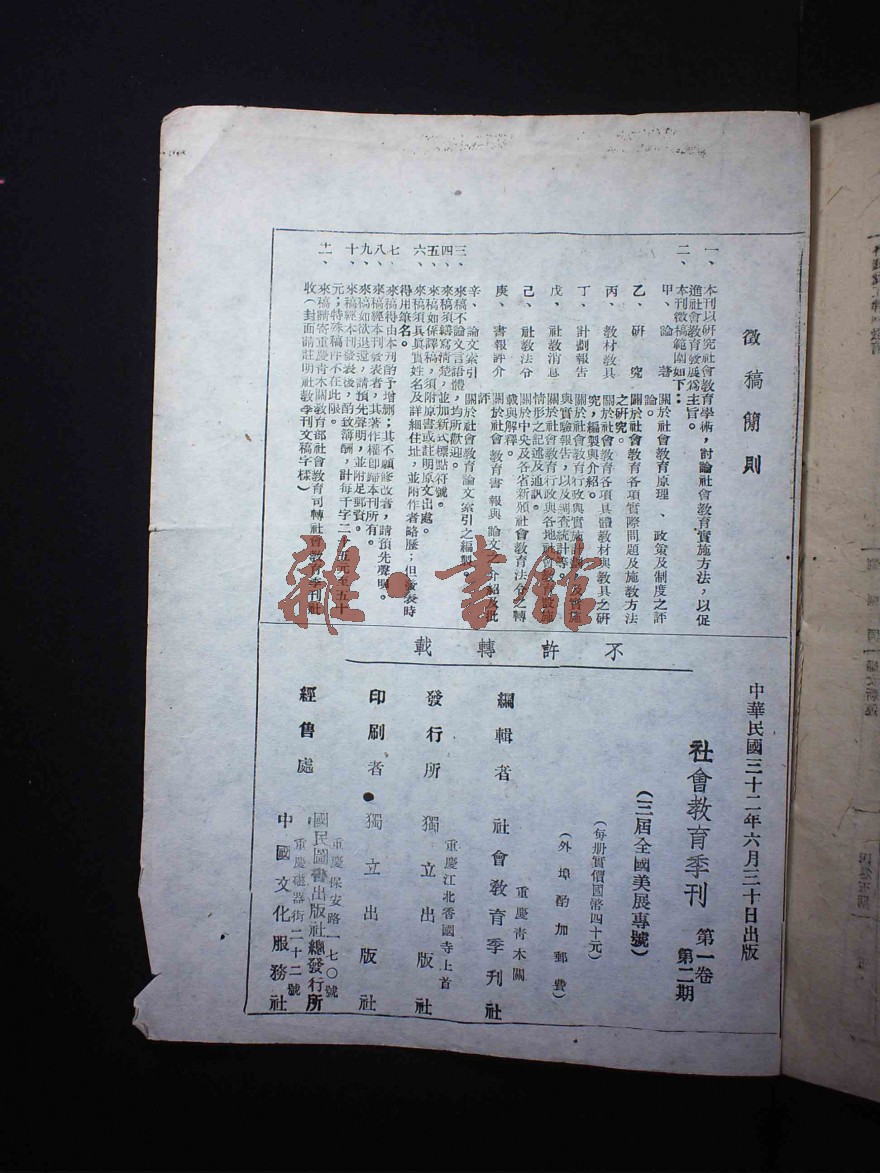 徵稿簡則
一、本刊以研究社會教育學術，討論社會教育實施方法，以促
進社會教育發展爲主旨。
二、本刊徵稿範圍如下：
甲、論著　關於社會教育原理、政策及制度之評
論。
乙、研究　關於社會教育各項實際問題及施教方法
之研究。
丙、教材教具　關於社會教育各項具體教材與教具之研
究，編製與介紹。
丁、計劃報告　關於社會教育行政與實施計劃及實施
與實驗報告，以及調查統計等。
戊、社教消息　關於社會教育行政與各地社會教育設施
情形之記述及通訊。
己、社教法令　關於中央及各省新頒社會教育法令之轉
載與解釋。
庚、書報評介　關於社會教育書報與論文之介紹及批
評
辛、論文索引　關於社會教育論文索引之編製。
三、來稿不論文言語體，均所歡迎。
四、來稿須繕寫清楚，並加新式標點符號。
五、來稿如係譯稿，須附原書或註明原文出處。
六、來稿須具眞實姓名及詳細住址，並附作者略歷；但發表時
得用筆名。
七、來稿得由本刊酌予增删；其不願修改者，請預先聲明。
八、來稿經本刊發表者，其著作權卽歸本刊所有。
九、來稿如欲退還，請預先聲明，並附足郵資。
十、來稿經本刊發表後，酌致薄酬，計每千字二十五元至五十
元；特殊稿件不在此限。
十一、來稿請寄重慶靑木關教育部社會教育司轉社會教育季刊社
收（封面請註明社教季刊文稿字樣）
雜·書館
不許轉載
中華民國三十二年六月三十日出版
社會教育季刊　第一卷　第二期
（三屆全國美展專號）
（每册實價國幣四十元）
（外埠酌加郵費）
編輯者　社會教育季刊社
重慶靑木關
發行所　獨立出版社
重慶江北香國寺上首
印刷者　獨立出版社
經售處　國民圖書出版社總發行所
重慶保安路一七〇號
中國文化服務社
重慶磁器街二十二號